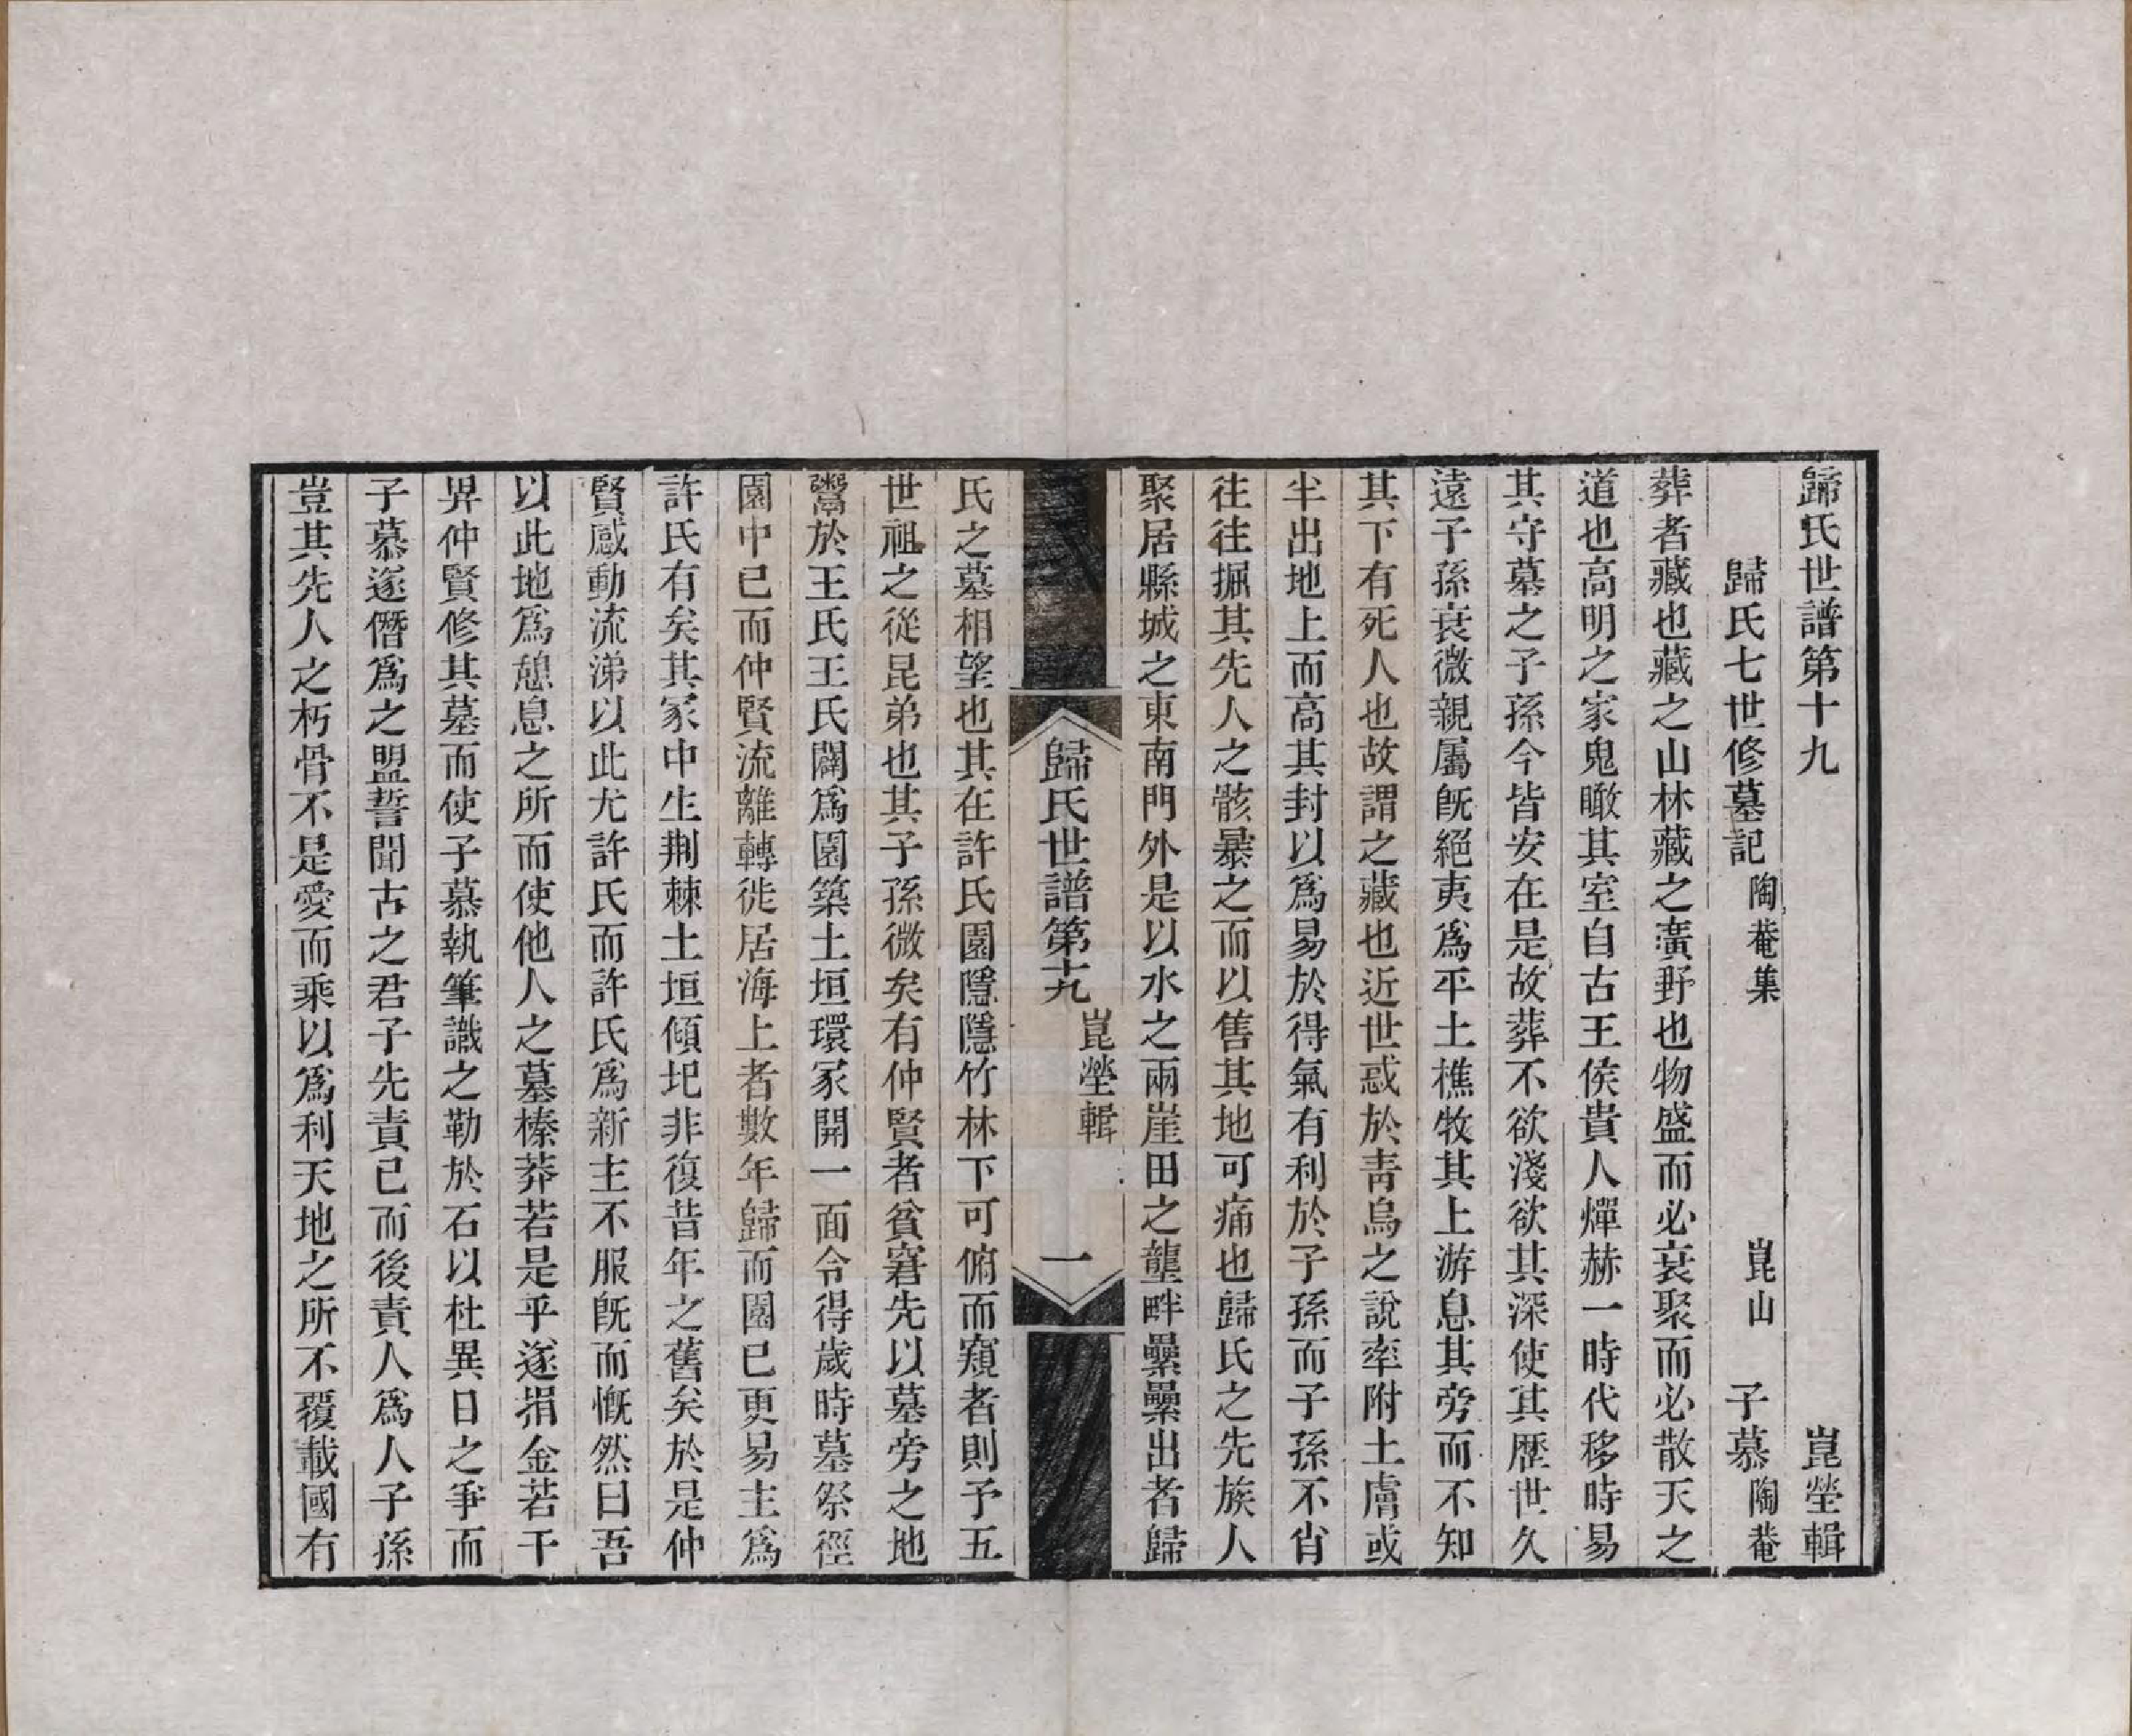 歸氏世譜第十九　崑塋輯
歸氏七世修墓記　陶菴集　崑山　子慕　陶菴
葬者藏也藏之山林藏之壙野也物盛而必衰聚而必散天之
道也高明之家鬼瞰其室自古王侯貴人燀赫一時代移時易
其守墓之子孫今皆安在是故葬不欲淺欲其深使其歷世久
遠子孫衰微親屬旣絕夷爲平土樵牧其上游息其旁而不知
其下有死人也故謂之藏也近世惑於青烏之說率附土膚或
半出地上而高其封以爲易於得氣有利於子孫而子孫不肖
往往掘其先人之骸暴之而以售其地可痛也歸氏之先族人
聚居縣城之東南門外是以水之兩崖田之壟畔纍纍出者歸
歸氏世譜第十九　崑塋輯　一
氏之墓相望也其在許氏園隱隱竹林下可俯而窺者則予五
世祖之從昆弟也其子孫微矣有仲賢者貧窘先以墓旁之地
鬻於王氏王氏闢爲園築土垣環冢開一面令得歲時墓祭徑
園中已而仲賢流離轉徙居海上者數年歸而園已更易主爲
許氏有矣其冢中生荆棘土垣傾圮非復昔年之舊矣於是仲
賢感動流涕以此尤許氏而許氏爲新主不服旣而慨然曰吾
以此地爲憩息之所而使他人之墓榛莽若是乎遂捐金若干
畀仲賢修其墓而使子慕執筆識之勒於石以杜異日之爭而
子慕遂僭爲之盟誓聞古之君子先責己而後責人爲人子孫
豈其先人之朽骨不是愛而乘以爲利天地之所不覆載國有